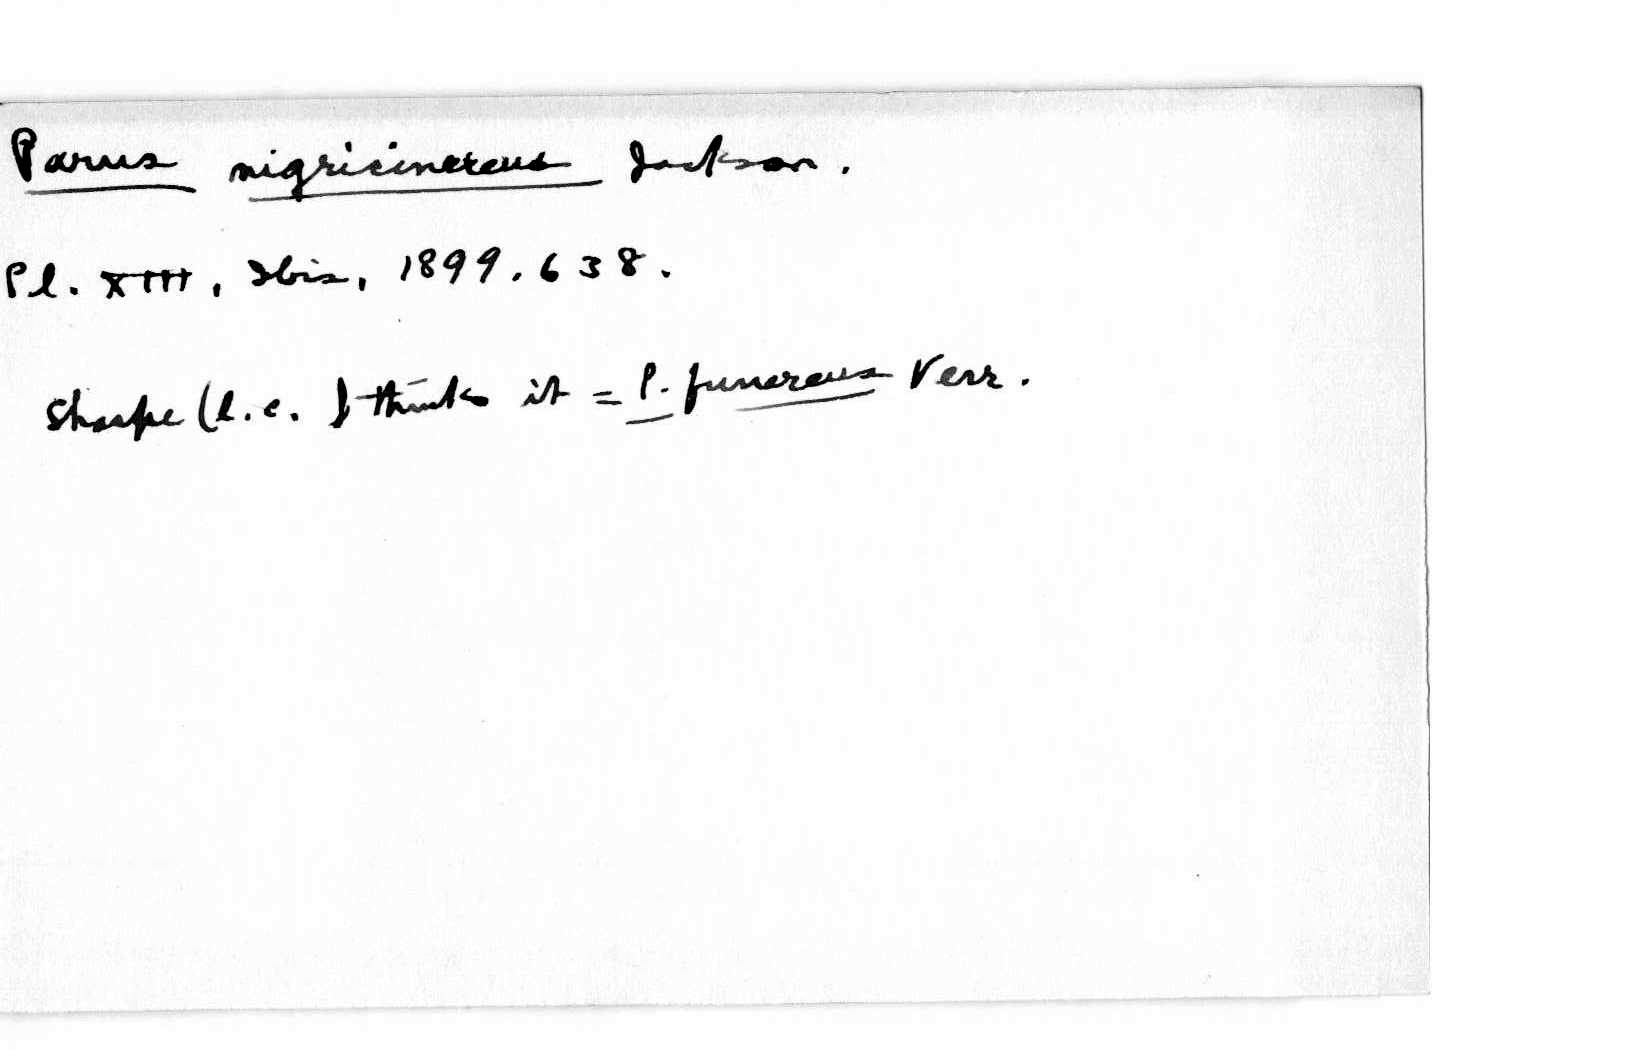 Parus nigricinereus Jackson.
Pl. XIII, Ibis, 1899. 638.
Sharpe (l.c.) thinks it = P. funereus Verr.